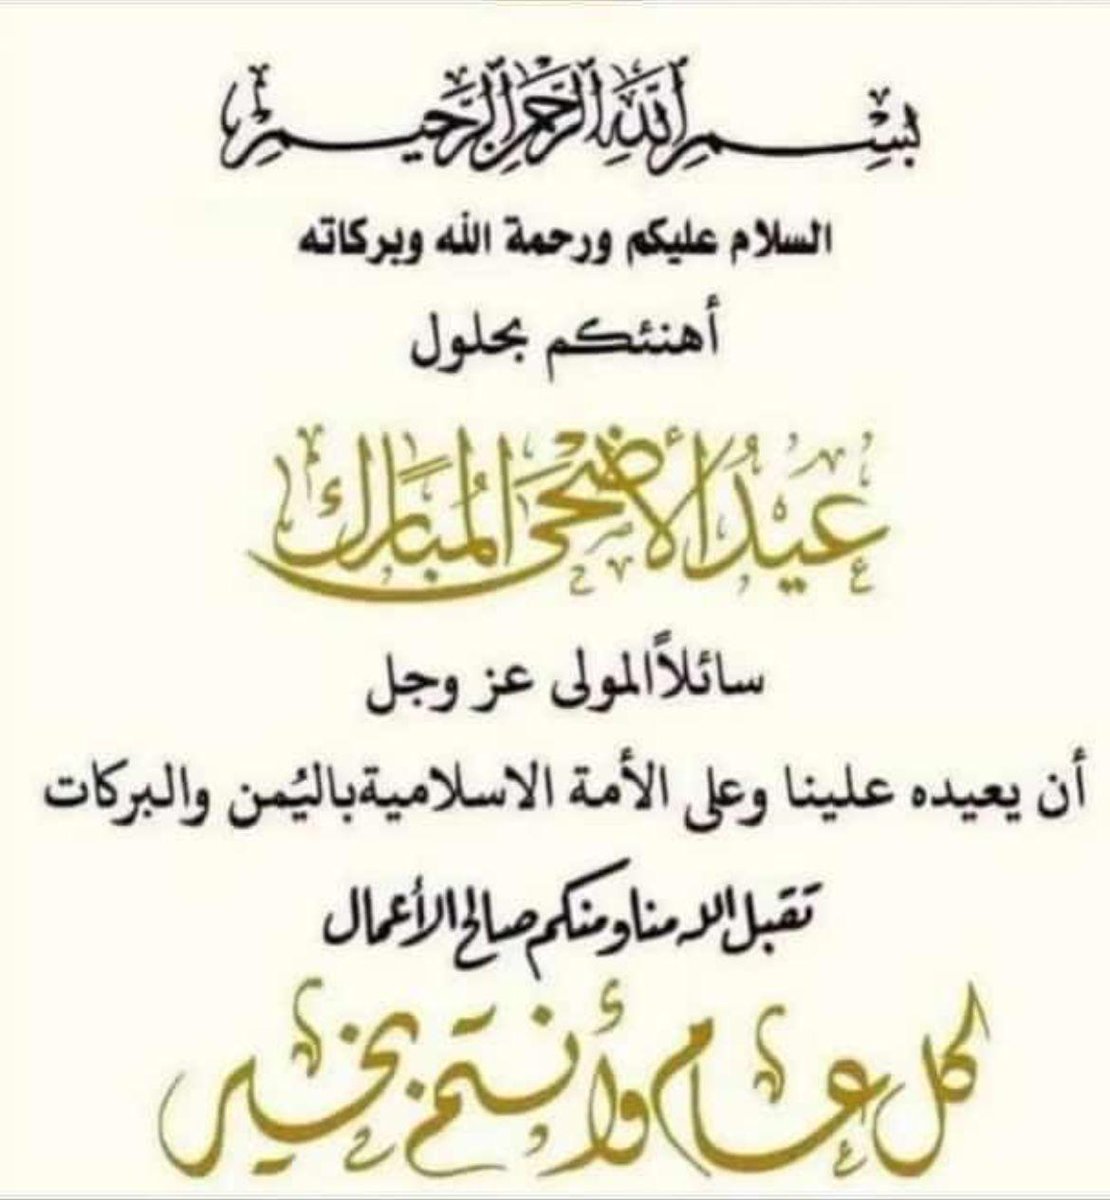 بسم الله الرحمن الرحيم
السلام عليكم ورحمة الله وبركاته
أهنئكم بحلول
عيدُ الأضحى المُبارك
سائلاًالمولى عز وجل
أن يعيده علينا وعلى الأمة الاسلاميةباليُمن والبركات
تقبل الله منا ومنكم صالح الأعمال
كل عام وأنتم بخير